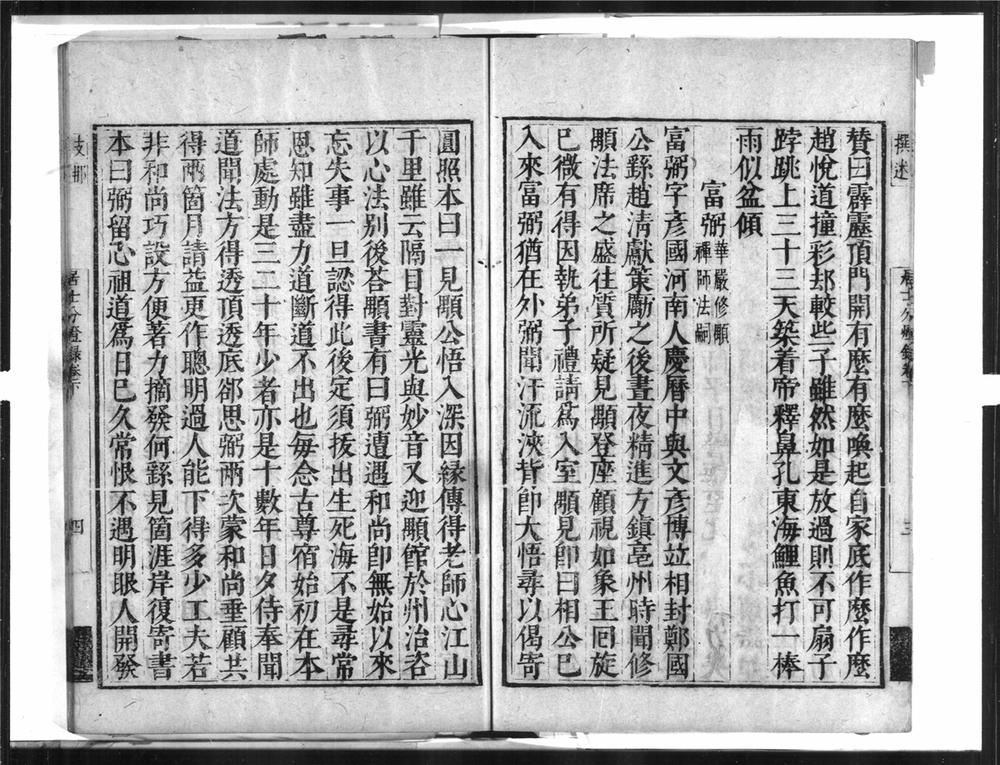 贊曰霹靂頂門開有麼有麼喚起自家底作麼作麼
趙悅道撞彩却較些子雖然如是放過則不可扇子
𨁝跳上三十三天築着帝釋鼻孔東海鯉魚打一棒
雨似盆傾
富弼華嚴修顒禪師法嗣
富弼字彥國河南人慶曆中與文彥博竝相封鄭國
公繇趙淸獻策勵之後晝夜精進方鎮亳州時聞修
顒法席之盛往質所疑見顒登座顧視如象王囘旋
已微有得因執弟子禮請爲入室顒見卽曰相公已
入來富弼猶在外弼聞汗流浹背卽大悟尋以偈寄
圓照本曰一見顒公悟入深因緣傳得老師心江山
千里雖云隔目對靈光與妙音又迎顒館於州治咨
以心法别後答顒書有曰弼遭遇和尚卽無始以來
忘失事一旦認得此後定須拔出生死海不是尋常
恩知雖盡力道斷道不出也每念古尊宿始初在本
師處動是三二十年少者亦是十數年日夕侍奉聞
道聞法方得透頂透底郤思弼兩次蒙和尚垂顧共
得兩箇月請益更作聰明過人能下得多少工夫若
非和尚巧設方便著力摘發何繇見箇涯岸復寄書
本曰弼留心祖道爲日已久常恨不遇明眼人開發
居士分燈錄卷下
四